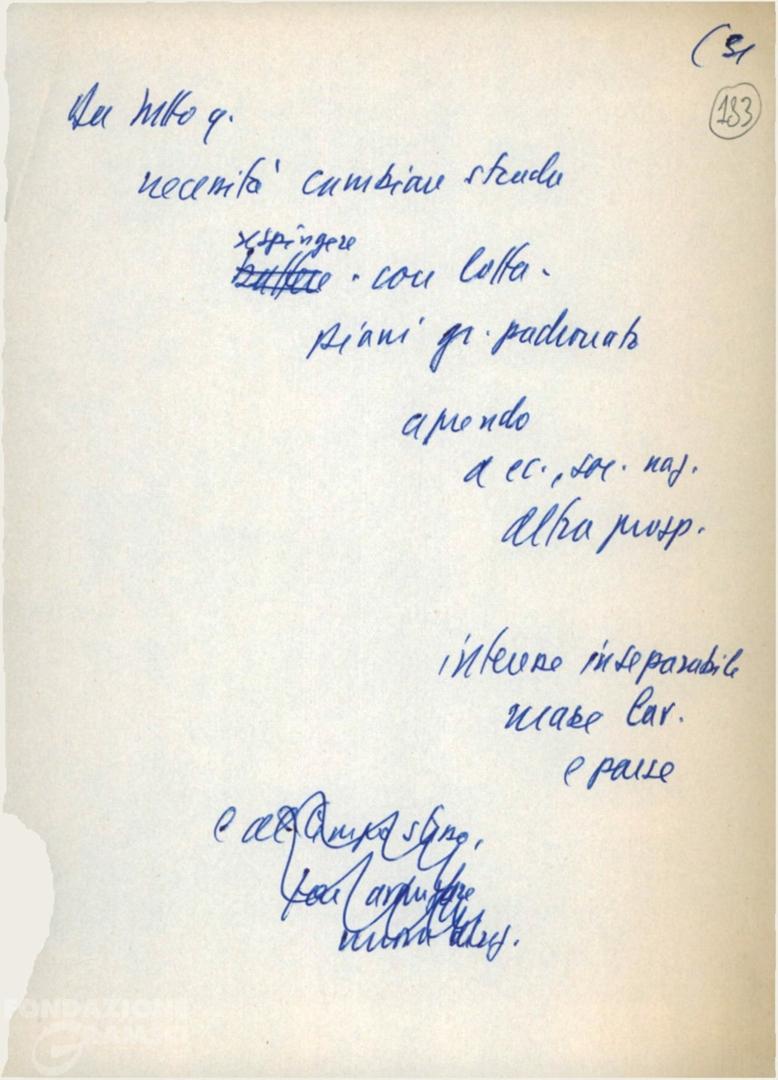 (51
183
Da tutto q.
necessità cambiare strada
respingere
battere · con lotta ·
piani gr. padronato
aprendo
a ec., soc. naz.
altra prosp.
interesse inseparabile
masse lav.
e paese
e al tempo stesso,
far
nuova
FONDAZIONE
GRAMSCI